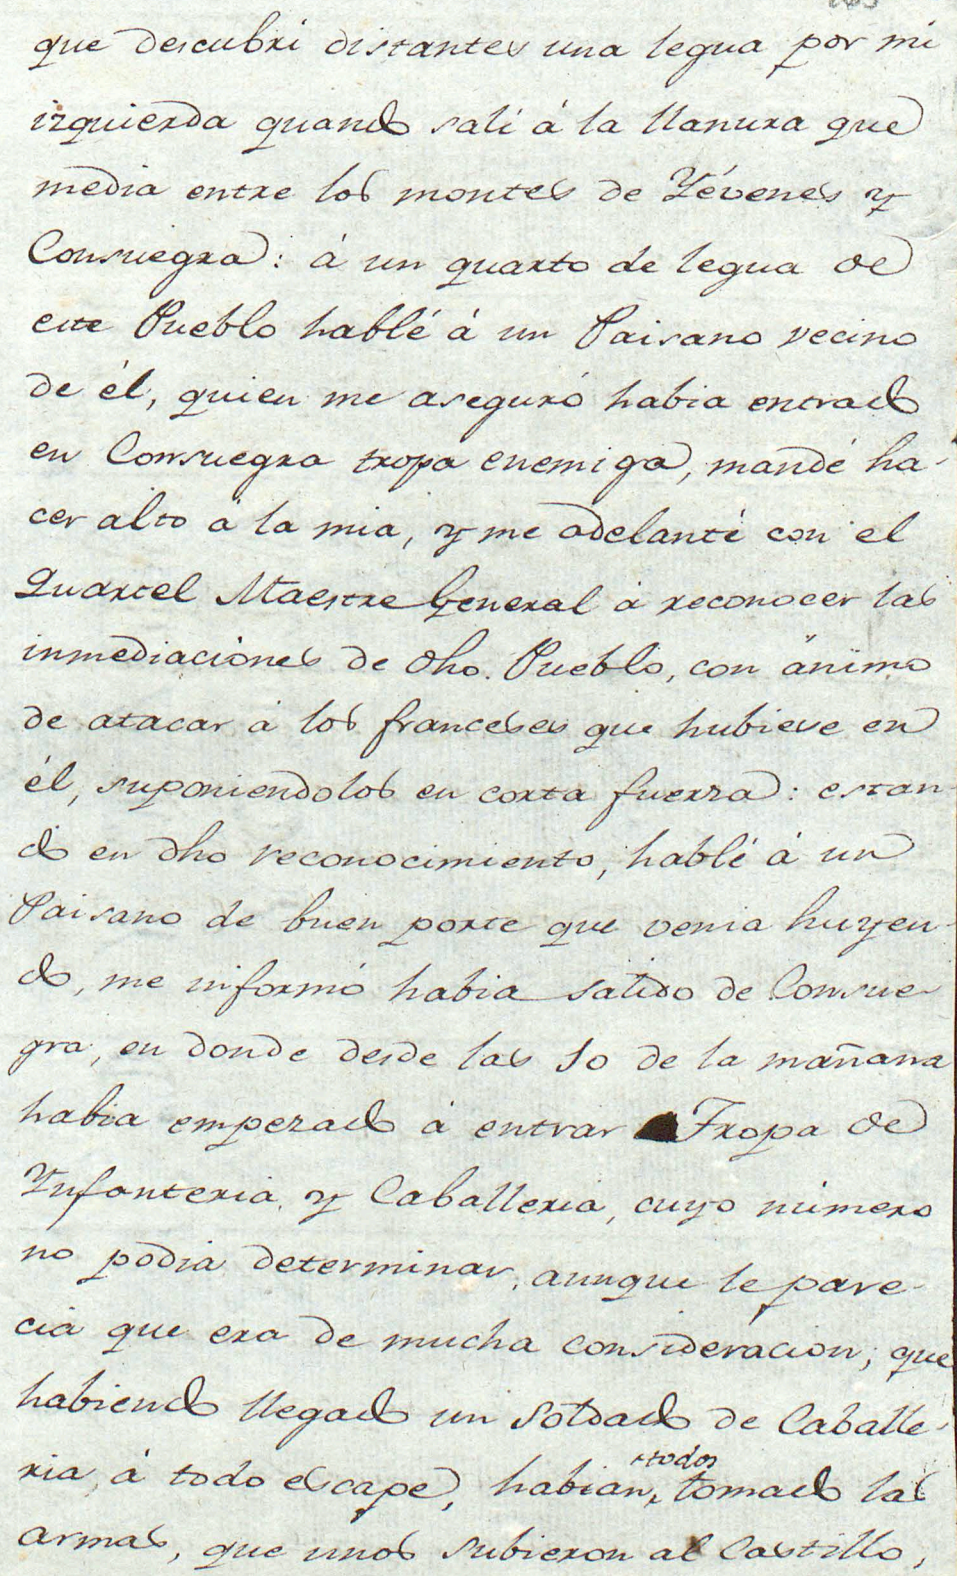 que descubri distantes una legua por mi
izquierda quando salí á la llanura que
media entre los montes de Yévenes y
Consuegra: á un quarto de legua de
este Pueblo hablé á un Paisano vecino
de él, quien me aseguró habia entrado
en Consuegra tropa enemiga, mandé ha-
cer alto á la mia, y me adelanté con el
Quartel Maestre General á reconocer las
inmediaciones de dho. Pueblo, con ánimo
de atacar á los franceses que hubiese en
él, suponiendolos en corta fuerza: estan-
do en dho reconocimiento, hablé á un
Paisano de buen porte que venia huyen-
do, me informó habia salido de Consue-
gra, en donde desde las 10 de la mañana
habia empezado á entrar Tropa de
Ynfanteria y Caballeria, cuyo número
no podia determinar, aunque le pare-
cia que era de mucha consideracion; que
habiendo llegado un Soldado de Caballe-
ria, á todo escape, habian todos tomado las
armas, que unos subieron al Castillo,